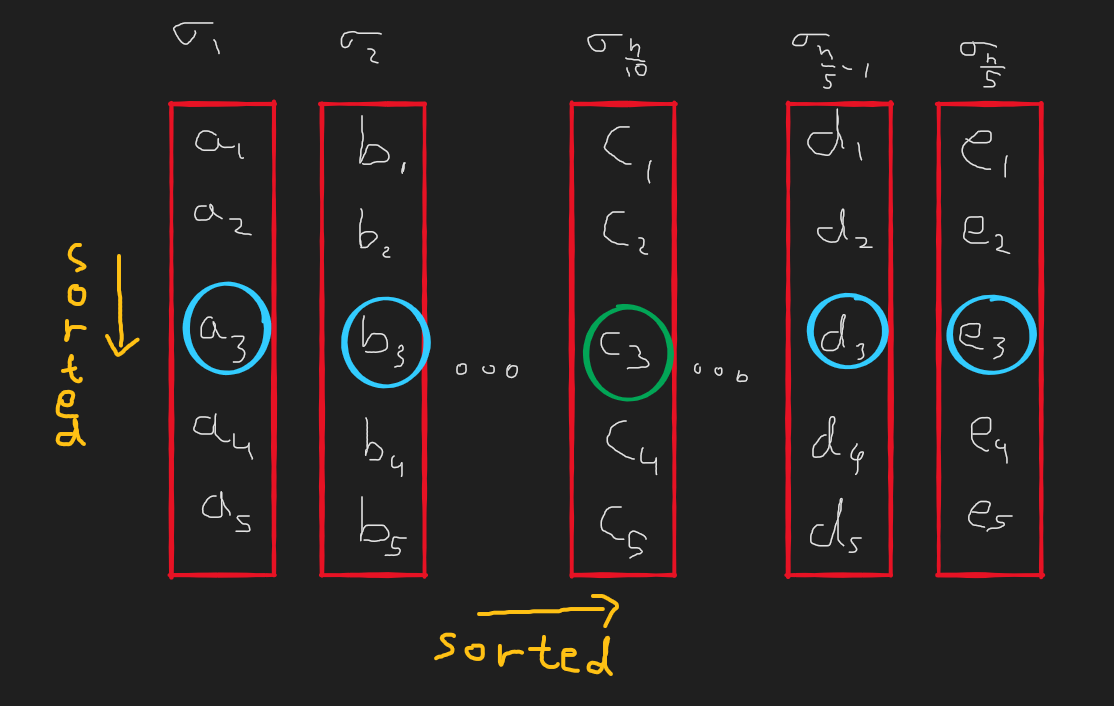 σ₁ σ₂ σ_{n/10} σ_{n/5 - 1} σ_{n/5}
a₁ b₁ c₁ d₁ e₁
a₂ b₂ c₂ d₂ e₂
a₃ b₃ ... c₃ ... d₃ e₃
a₄ b₄ c₄ d₄ e₄
a₅ b₅ c₅ d₅ e₅
sorted
sorted